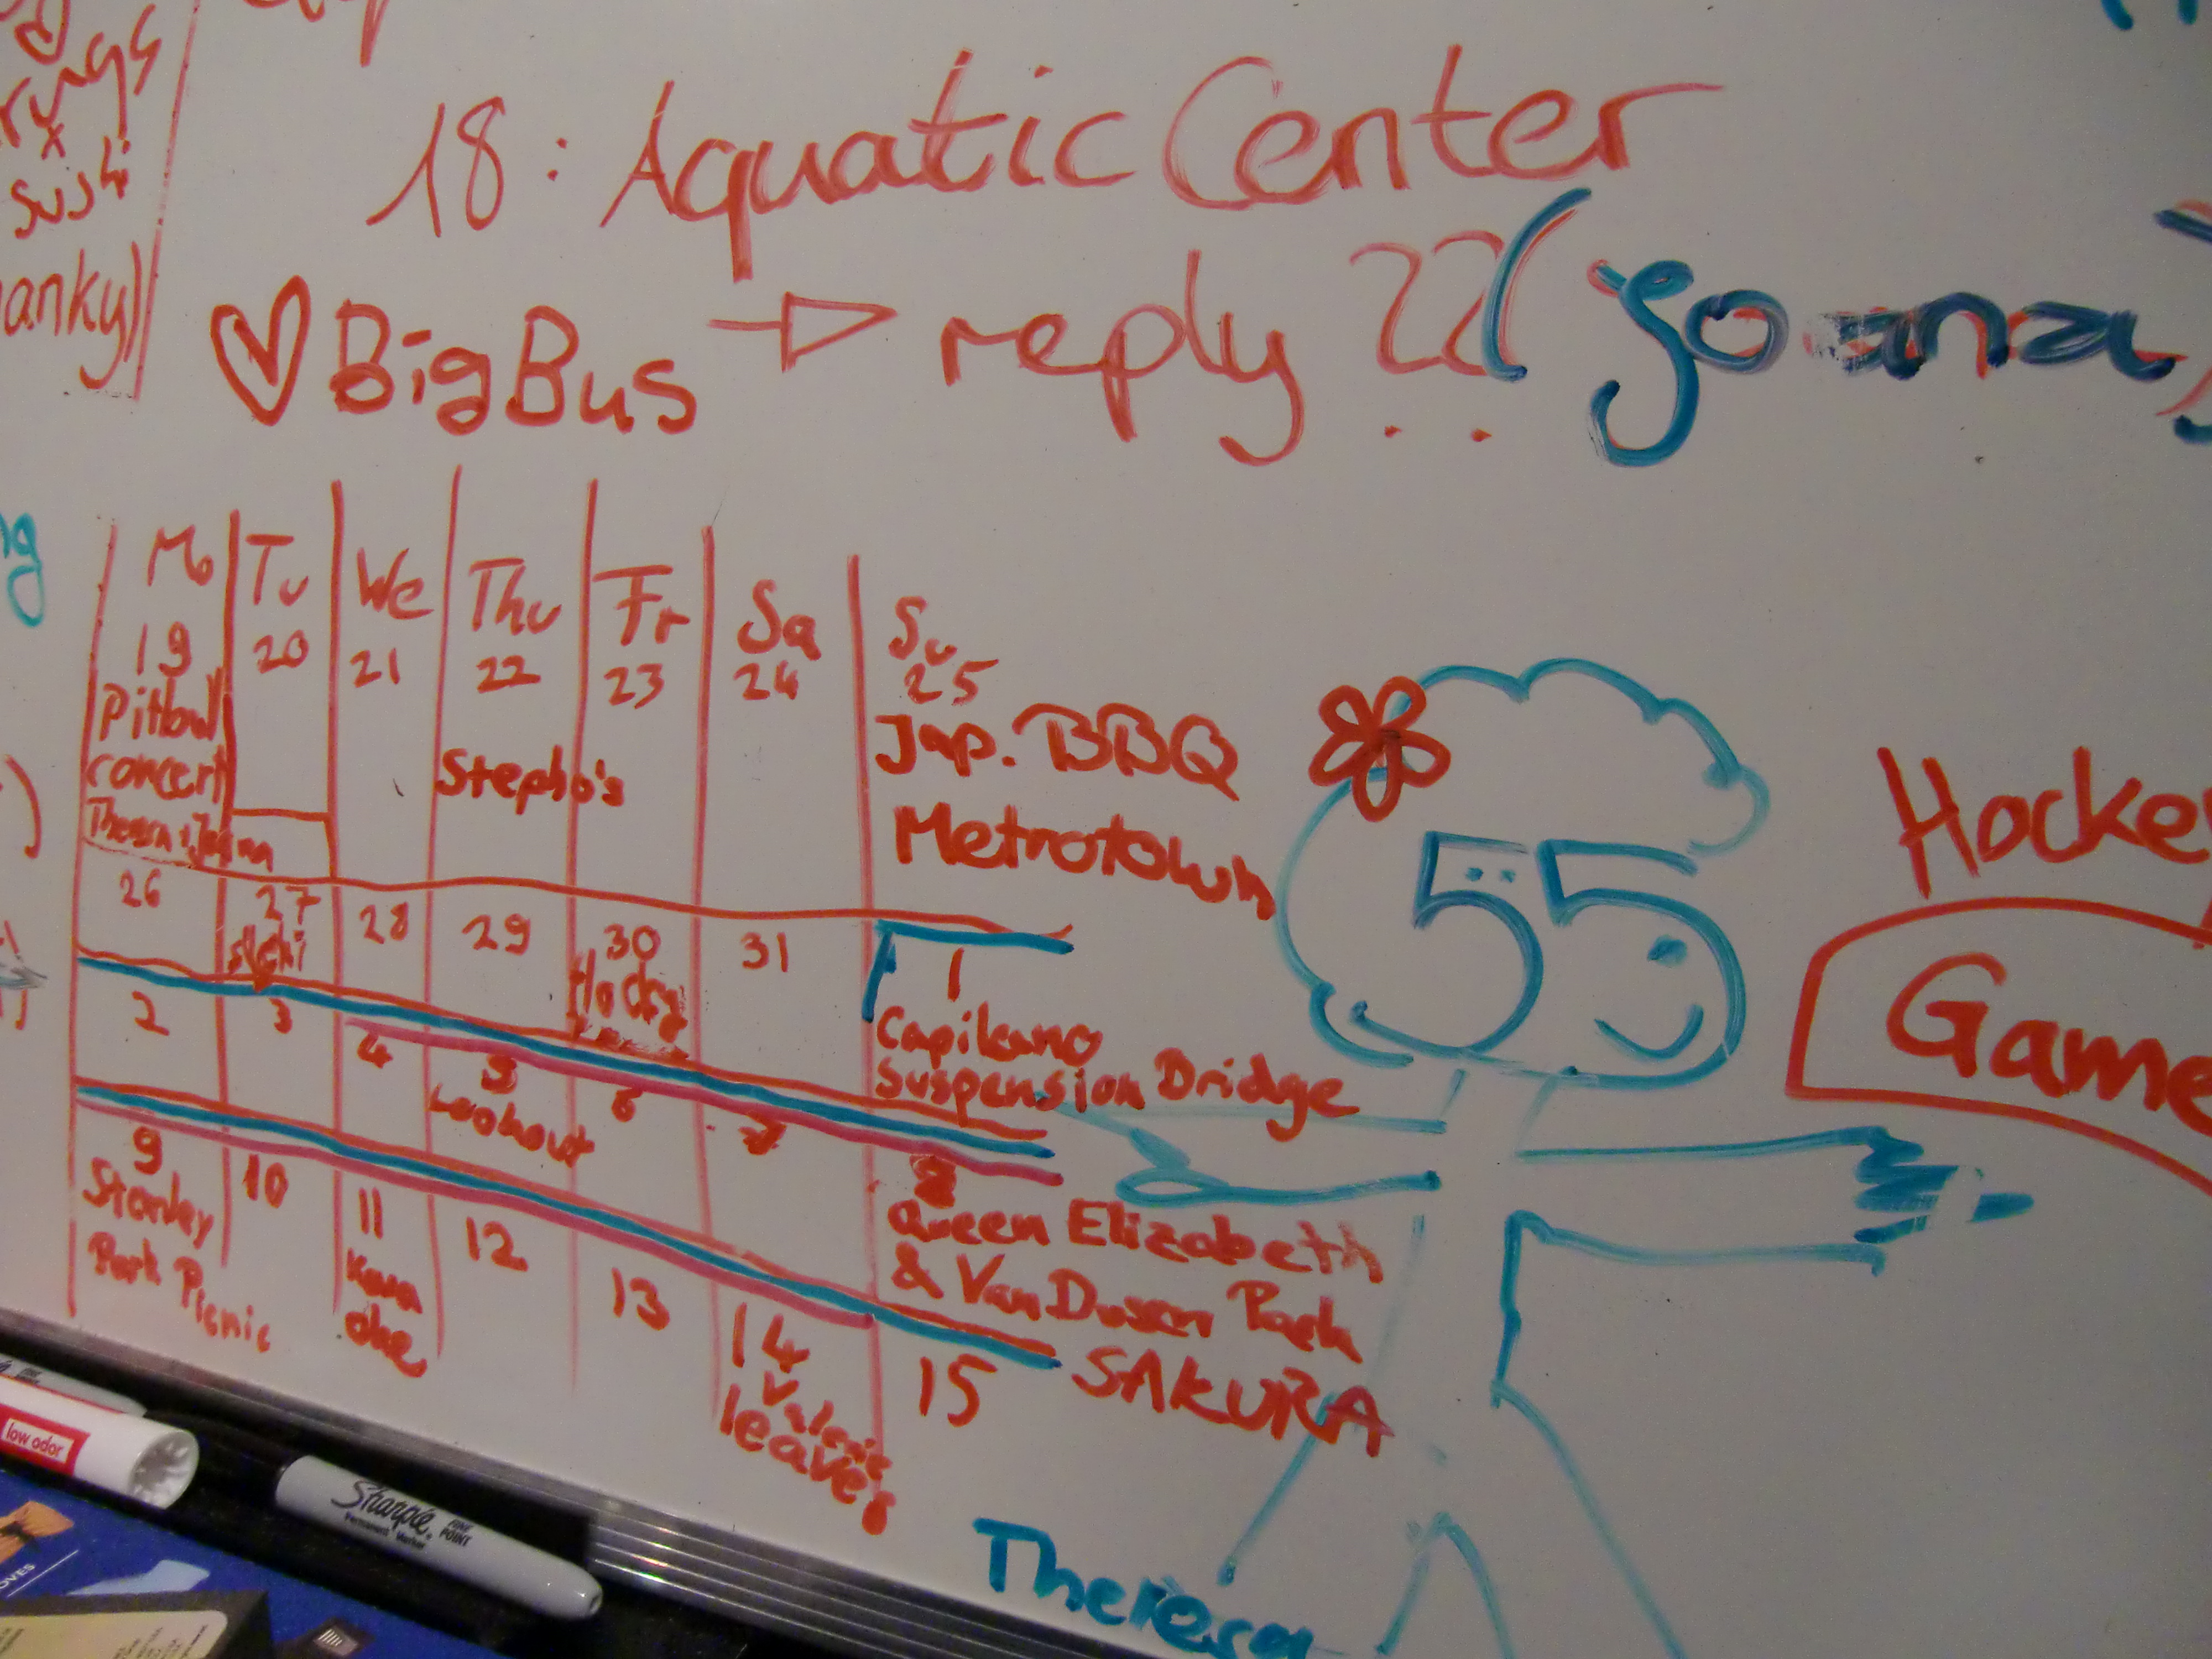 sushi
18: Aquatic Center
BigBus → reply ?? (Joana)
Mo Tu We Thu Fr Sa Su
19 20 21 22 23 24 25
Pitbull
concert
Stepho's
Jap. BBQ
Metrotown
26 27 28 29 30 31 1
Hockey
Capilano
Suspension Bridge
2 3 4 5 6 7 8
Lookout
Queen Elizabeth
& VanDusen Park
SAKURA
9 10 11 12 13 14 15
Stanley
Park Picnic
Kara
oke
leaves
55
Hockey
Game
Theresa
low odor
Sharpie
FINE
POINT
Permanent Marker